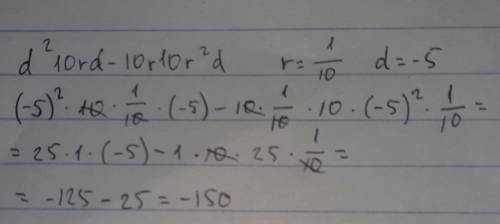 d²10rd-10r10r²d r=1/10 d=-5
(-5)²·10·1/10·(-5)-10·1/10·10·(-5)²·1/10=
=25·1·(-5)-1·10·25·1/10=
=-125-25=-150